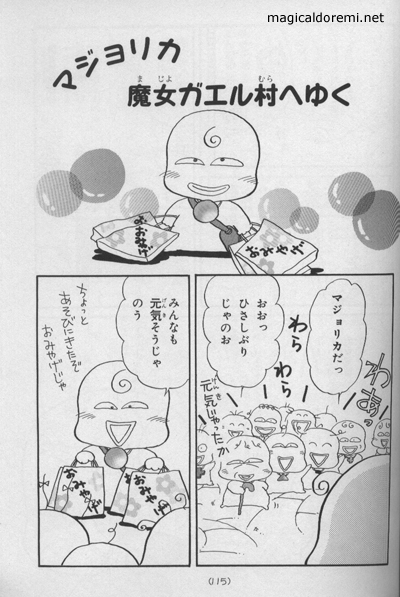 magicaldoremi.net
マジョリカ
魔女ガエル村へゆく
まじょ
むら
おみやげ
おみやげ
マジョリカだっ
わあっ
わら
わら
おおっ
ひさしぶり
じゃのお
元気じゃったか
げんき
みんなも
元気そうじゃ
のう
げんき
ちょっと
あそびにきたぞ
おみやげじゃ
おみやげ
おみやげ
(115)